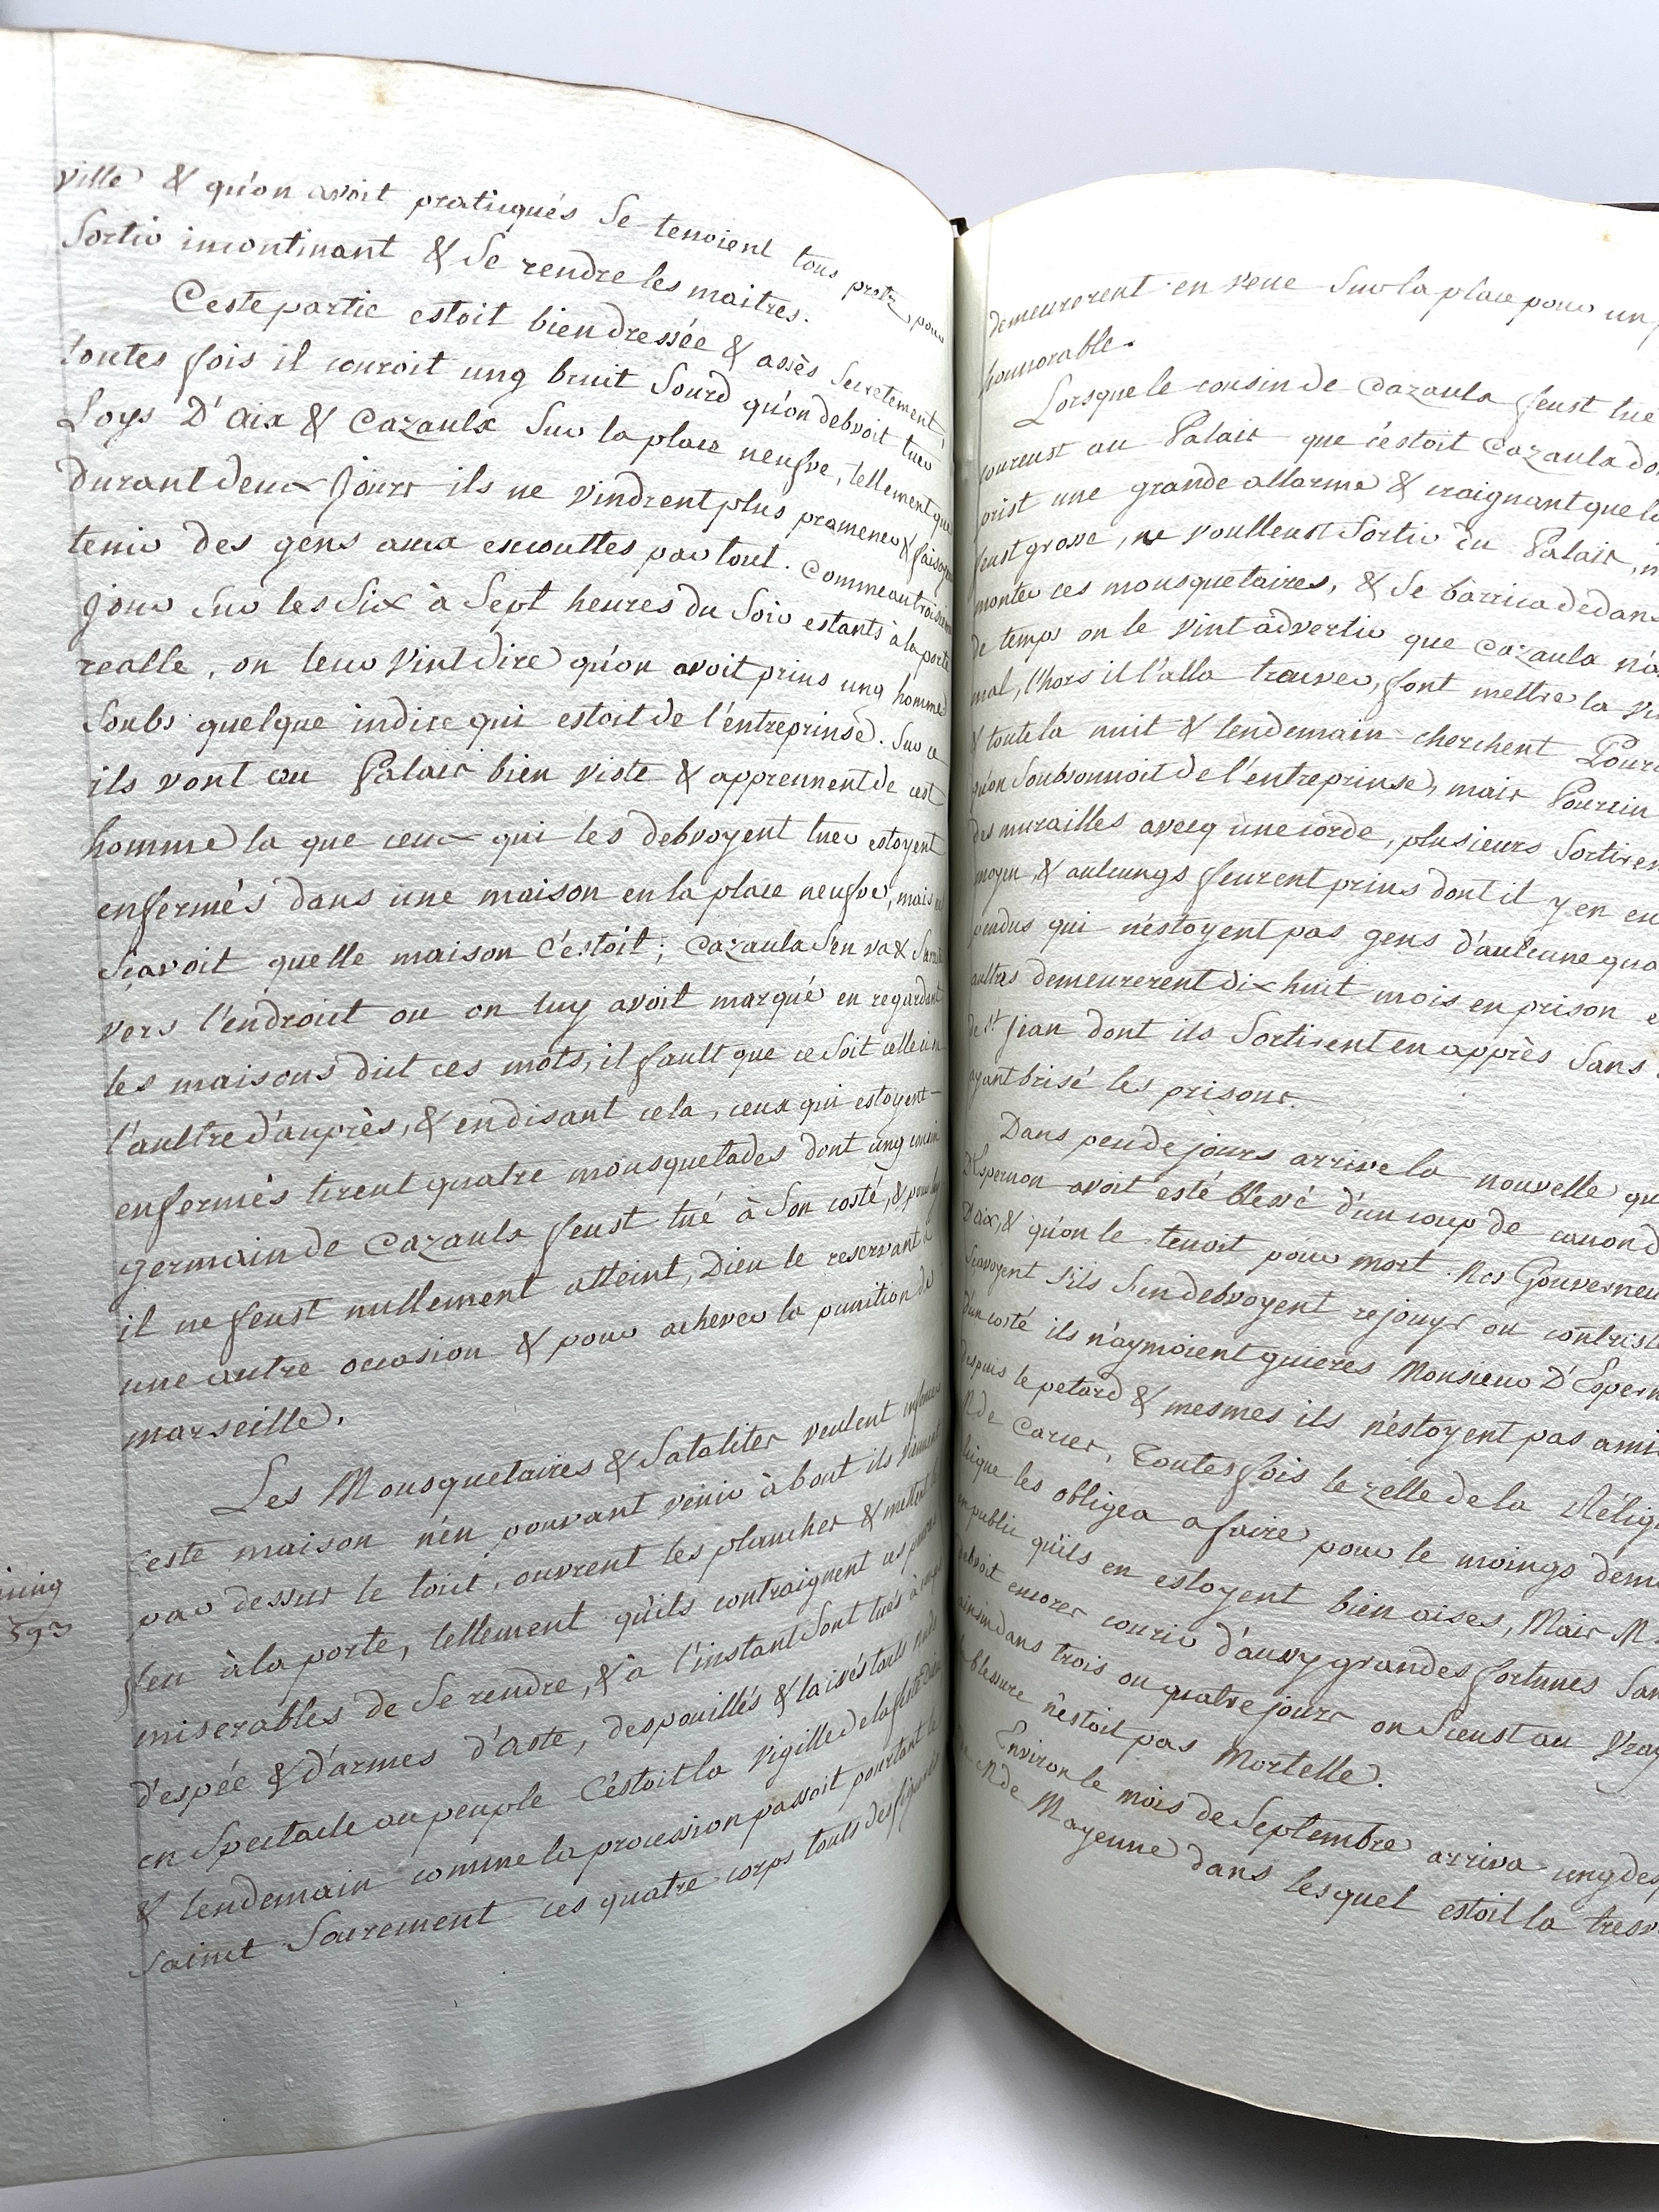 ville & qu'on avoit pratiqués se tenoient tous pretz, pour
Sortir incontinant & se rendre les maitres.
Ceste partie estoit bien dressée & assès secretement,
toutes fois il couroit ung bruit sourd qu'on debvoit tuer
Loys D'aix & Cazaulx sur la place neufve, tellement que
durant deux jours ils ne vindrent plus promener & faisoyent
tenir des gens aux escouttes par tout. Comme au troisiesme
jour sur les six à sept heures du soir estants à la porte
realle, on leur vint dire qu'on avoit prins ung homme
soubs quelque indice qui estoit de l'entreprinse. Sur ce
ils vont au Palais bien viste & apprennent de cest
homme la que ceux qui les debvoyent tuer estoyent
enfermés dans une maison en la place neufve, mais
sçavoit quelle maison c'estoit; Cazaula s'en va &
vers l'endroict ou on luy avoit marqué en regardant
les maisons dict ces mots, il fault que ce soit celle
l'aultre d'auprès, & en disant cela, ceux qui estoyent
enfermés tirent quatre mousquetades dont ung cousin
germain de Cazaula feust tué à son costé, & pour luy
il ne feust nullement atteint, Dieu le reservant à
une autre occasion & pour achever la punition de
marseille.
Les Mousquetaires & Sataliter veulent
ceste maison n'en pouvant venir à bout ils viennent
par dessus le toict, ouvrent les plancher & mettent le
feu à la porte, tellement qu'ils contraignent ces pauvres
miserables de se rendre, & à l'instant sont tués à
d'espée & d'armes d'aste, despouillés & laisés touts nuds
en spectacle au peuple C'estoit la vigille de la feste dieu
& lendemain comme la procession passoit pourtant le
sainct Sacrement ces quatre corps touts desfigurés
593
demeurerent en veue sur la place pour un
honnorable.
Lorsque le cousin de Cazaula feust tué
coureust au Palais que c'estoit Cazaula
prist une grande allarme & craignant que
feust grosse, ne voulleust sortir du Palais,
monter ces mousquetaires, & se barricadedans
de temps on le vint advertir que Cazaula
mal, l'hors il l'alla trouver, font mettre la
& toute la nuit & lendemain cherchent
qu'on soubsonnoit de l'entreprinse, mais Pourrin
des murailles avecq une corde, plusieurs sortirent
moyen, & aulcungs feurent prins dont il y en
pendus qui n'estoyent pas gens d'aulcune
aultres demeurerent dix huit mois en prison
de St Jean dont ils sortirent en apprès sans
ayant brisé les prisons.
Dans peu de jours arrive la nouvelle
D'Espernon avoit esté blessé d'un coup de canon
D'aix, & qu'on le tenoit pour mort. Nos Gouverneurs
sçavoyent s'ils s'en debvoyent rejouyr ou contrister
D'un costé ils n'aymoient guieres Monsieur D'Espernon
despuis le petard & mesmes ils n'estoyent pas amis
M de Carces, Toutes fois le zelle de la Réligion
les obligea a faire pour le moings
en public qu'ils en estoyent bien aises, Mais M
debvoit encorer courir d'aussy grandes fortunes
ainsin dans trois ou quatre jours on sceust au vray
la blessure n'estoit pas Mortelle.
Environ le mois de Septembre arriva ung
de M de Mayenne dans lesquel estoit la